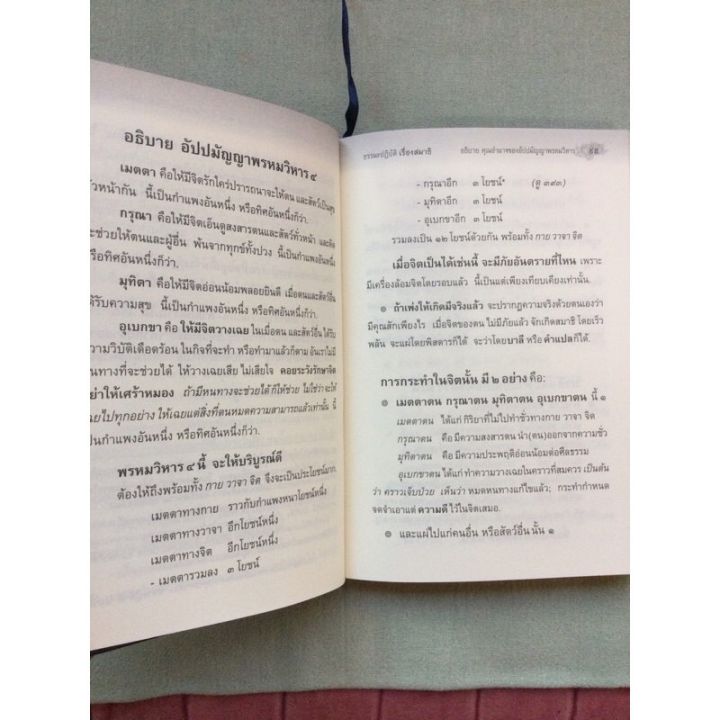 อธิบาย อัปปมัญญาพรหมวิหาร ๔
เมตตา คือให้มีจิตรักใคร่ปรารถนาจะให้ตน และสัตว์เป็นสุข
หน้ากัน นี้เป็นกำแพงอันหนึ่ง หรือทิศอันหนึ่งก็ว่า.
กรุณา คือให้มีจิตเอ็นดูสงสารตนและสัตว์ทั่วหน้า และคิด
จะช่วยให้ตนและผู้อื่น พ้นจากทุกข์ทั้งปวง นี้เป็นกำแพงอันหนึ่ง
หรือทิศอันหนึ่งก็ว่า.
มุทิตา คือให้มีจิตอ่อนน้อมพลอยยินดี เมื่อตนและสัตว์อื่น
ได้รับความสุข นี้เป็นกำแพงอันหนึ่ง หรือทิศอันหนึ่งก็ว่า.
อุเบกขา คือ ให้มีจิตวางเฉย ในเมื่อตน และสัตว์อื่น ได้รับ
ความวิบัติเดือดร้อน ในกิจที่จะทำ หรือทำมาแล้วก็ตาม อันเราไม่มี
หนทางที่จะช่วยได้ ให้วางเฉยเสีย ไม่เสียใจ คอยระวังรักษาจิต
อย่าให้เศร้าหมอง ถ้ามีหนทางจะช่วยได้ ก็ให้ช่วย ไม่ใช่ว่าจะให้
เฉยไปทุกอย่าง ให้เฉยแต่สิ่งที่ตนหมดความสามารถแล้วเท่านั้น นี้
เป็นกำแพงอันหนึ่ง หรือทิศอันหนึ่งก็ว่า.
พรหมวิหาร ๔ นี้ จะให้บริบูรณ์ดี
ต้องให้ถึงพร้อมทั้ง กาย วาจา จิต จึงจะเป็นประโยชน์มาก.
เมตตาทางกาย ราวกับกำแพงหนาโยชน์หนึ่ง
เมตตาทางวาจา อีกโยชน์หนึ่ง
เมตตาทางจิต อีกโยชน์หนึ่ง
- เมตตารวมลง ๓ โยชน์
ธรรมะปฏิบัติ เรื่องสมาธิ อธิบาย คุณอำนาจของอัปปมัญญาพรหมวิหาร
- กรุณาอีก ๓ โยชน์* (ดู ๓๙๓)
- มุทิตาอีก ๓ โยชน์
- อุเบกขาอีก ๓ โยชน์
รวมลงเป็น ๑๒ โยชน์ด้วยกัน พร้อมทั้ง กาย วาจา จิต
เมื่อจิตเป็นได้เช่นนี้ จะมีภัยอันตรายที่ไหน เพราะ
มีเครื่องล้อมจิตโดยรอบแล้ว นี้เป็นแต่เพียงเทียบเคียงเท่านั้น.
ถ้าเพ่งให้เกิดมีจริงแล้ว จะปรากฏความจริงด้วยตนเองว่า
มีคุณสักเพียงไร เมื่อจิตของตน ไม่มีภัยแล้ว จักเกิดสมาธิ โดยเร็ว
พลัน จะแผ่โดยพิสดารก็ได้ จะว่าโดยบาลี หรือ คำแปลก็ได้.
การกระทำในจิตนั้น มี ๒ อย่าง คือ:
เมตตาตน กรุณาตน มุทิตาตน อุเบกขาตน นี้ ๑
เมตตาตน ได้แก่ กิริยาที่ไม่ไปทำชั่วทางกาย วาจา จิต
กรุณาตน คือ มีความสงสารตน นำ(ตน)ออกจากความชั่ว
มุทิตาตน คือ มีความประพฤติอ่อนน้อมต่อศีลธรรม
อุเบกขาตน ได้แก่ ทำความวางเฉยในคราวที่สมควร เป็นต้น
ว่า คราวเจ็บป่วย เห็นว่า หมดหนทางแก้ไขแล้ว; กระทำกำหนด
จดจำเอาแต่ ความดี ไว้ในจิตเสมอ.
และแผ่ไปแก่คนอื่น หรือสัตว์อื่น นั้น ๑